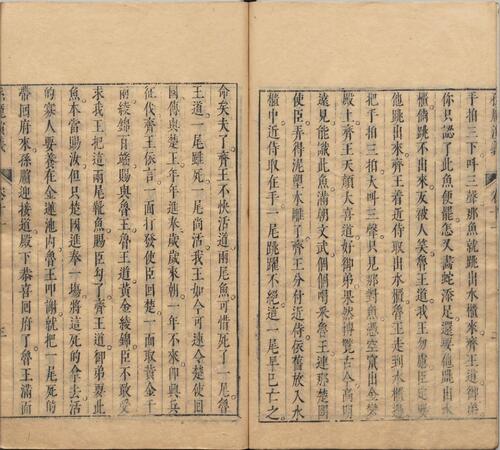 手拍三下叫三聲那魚就跳出水櫃來齊王道御弟
你只認了此魚便罷怎又畫蛇添足還要他跳出水
櫃倘跳不出來友被人笑魯王道我王勿慮臣定要
他跳出來齊王着近侍取出水櫃魯王走到水櫃邊
把手拍三拍大叫三聲只見那對魚憑空竄出金鑾
殿上齊王天顏大喜道好御弟果然博覽古今高明
遠見能識此魚滿朝文武個個喝采魯王連那楚國
使臣弄得泥塑木雕了齊王分付近侍依舊放入水
櫃中近侍取在手一尾跳躍不絕這一尾早已亡之
命矣夫了齊王不快活道兩尾魚可惜死了一尾魯
王道一尾雖死一尾尚活我王如今可速令楚使回
國傳與楚王年年進奉歲歲來朝一年不來卽興兵
征伐齊王依言一面打發使臣回楚一面取黃金千
兩綾錦百疋賜與魯王魯王道黃金綾錦臣不敢受
求我王把這兩尾魚賜臣勾了齊王道御弟要此
魚本當賜汝但只楚國進奉一場將這死的拿去活
的寡人要養在金蓮池內魯王叩謝就把一尾死的
帶回府來孫臏迎接道殿下恭喜回府了魯王滿面